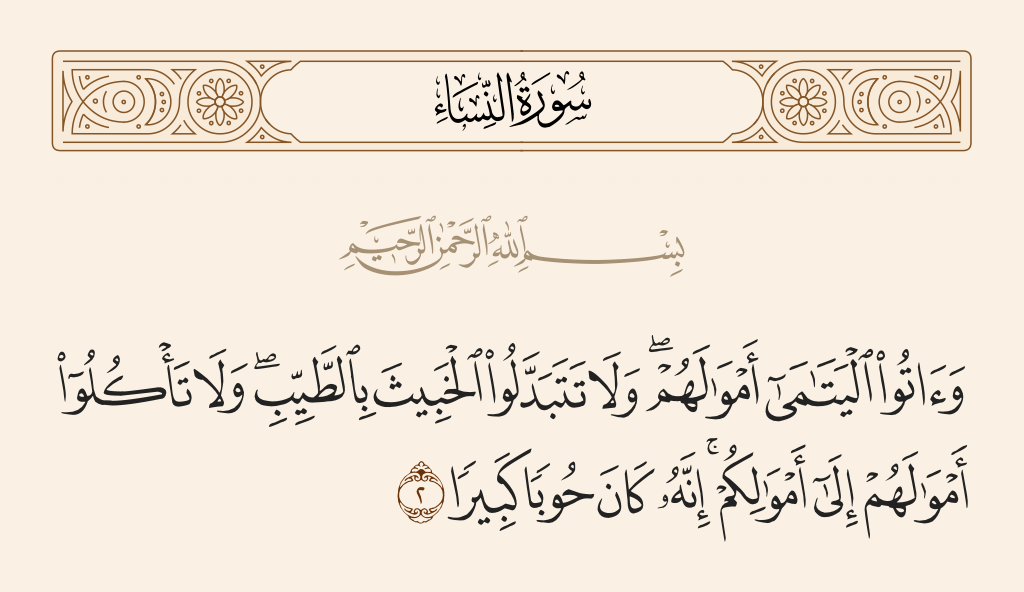 سُورَةُ النِّسَاءِ
بِسْمِ ٱللَّهِ ٱلرَّحْمَٰنِ ٱلرَّحِيمِ
وَءَاتُوا۟ ٱلْيَتَـٰمَىٰٓ أَمْوَٰلَهُمْ ۖ وَلَا تَتَبَدَّلُوا۟ ٱلْخَبِيثَ بِٱلطَّيِّبِ ۖ وَلَا تَأْكُلُوٓا۟
أَمْوَٰلَهُمْ إِلَىٰٓ أَمْوَٰلِكُمْ ۚ إِنَّهُۥ كَانَ حُوبًا كَبِيرًا ٢